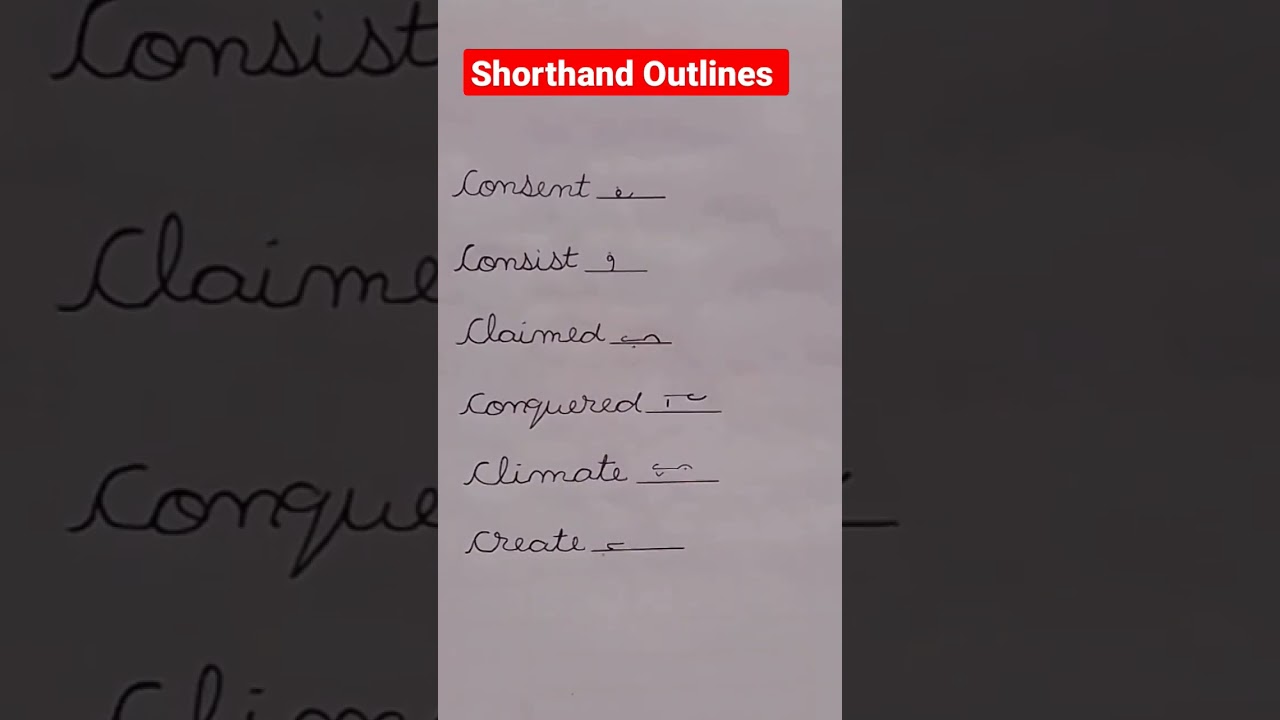 Shorthand Outlines
Consent
Consist
Claimed
Conquered
Climate
Create